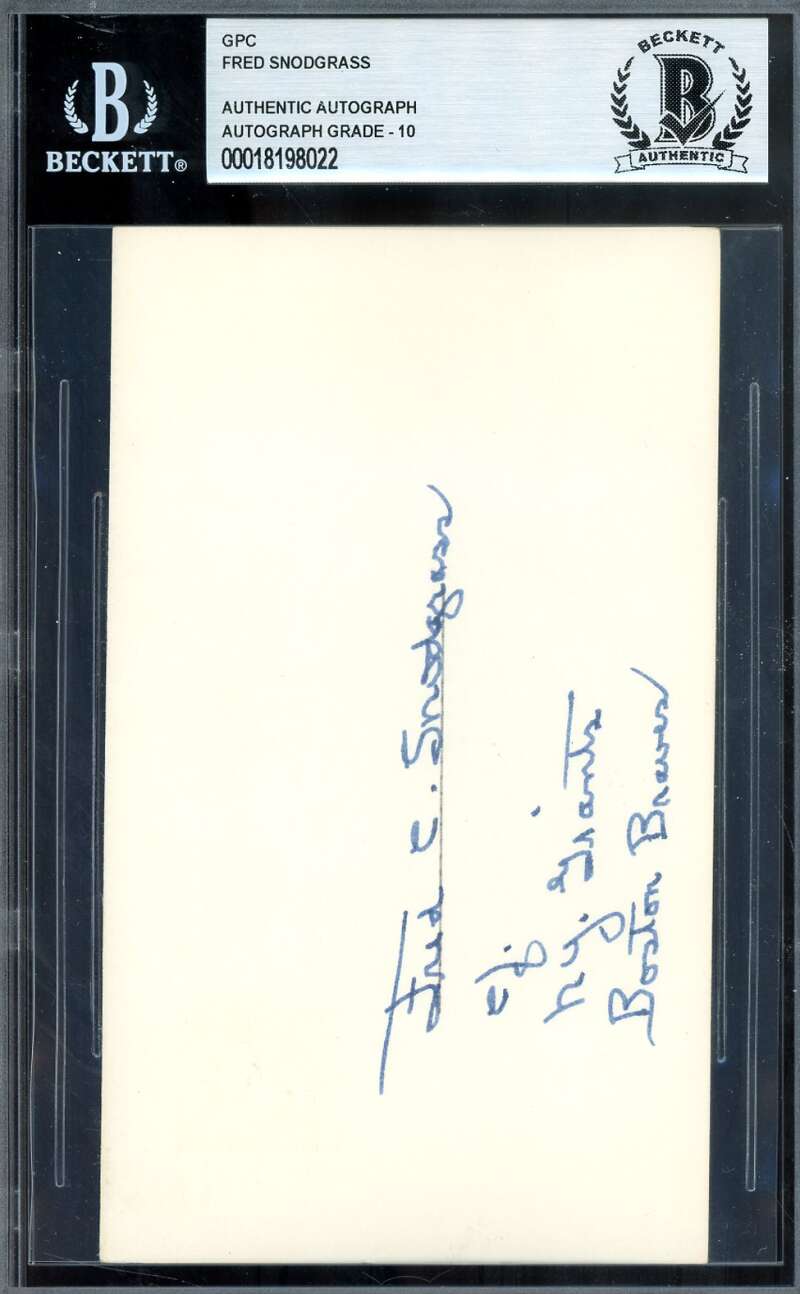 GPC
FRED SNODGRASS
AUTHENTIC AUTOGRAPH
AUTOGRAPH GRADE - 10
00018198022
B
BECKETT®
BECKETT
B
AUTHENTIC
Fred C. Snodgrass
cf.
N.Y. Giants
Boston Braves